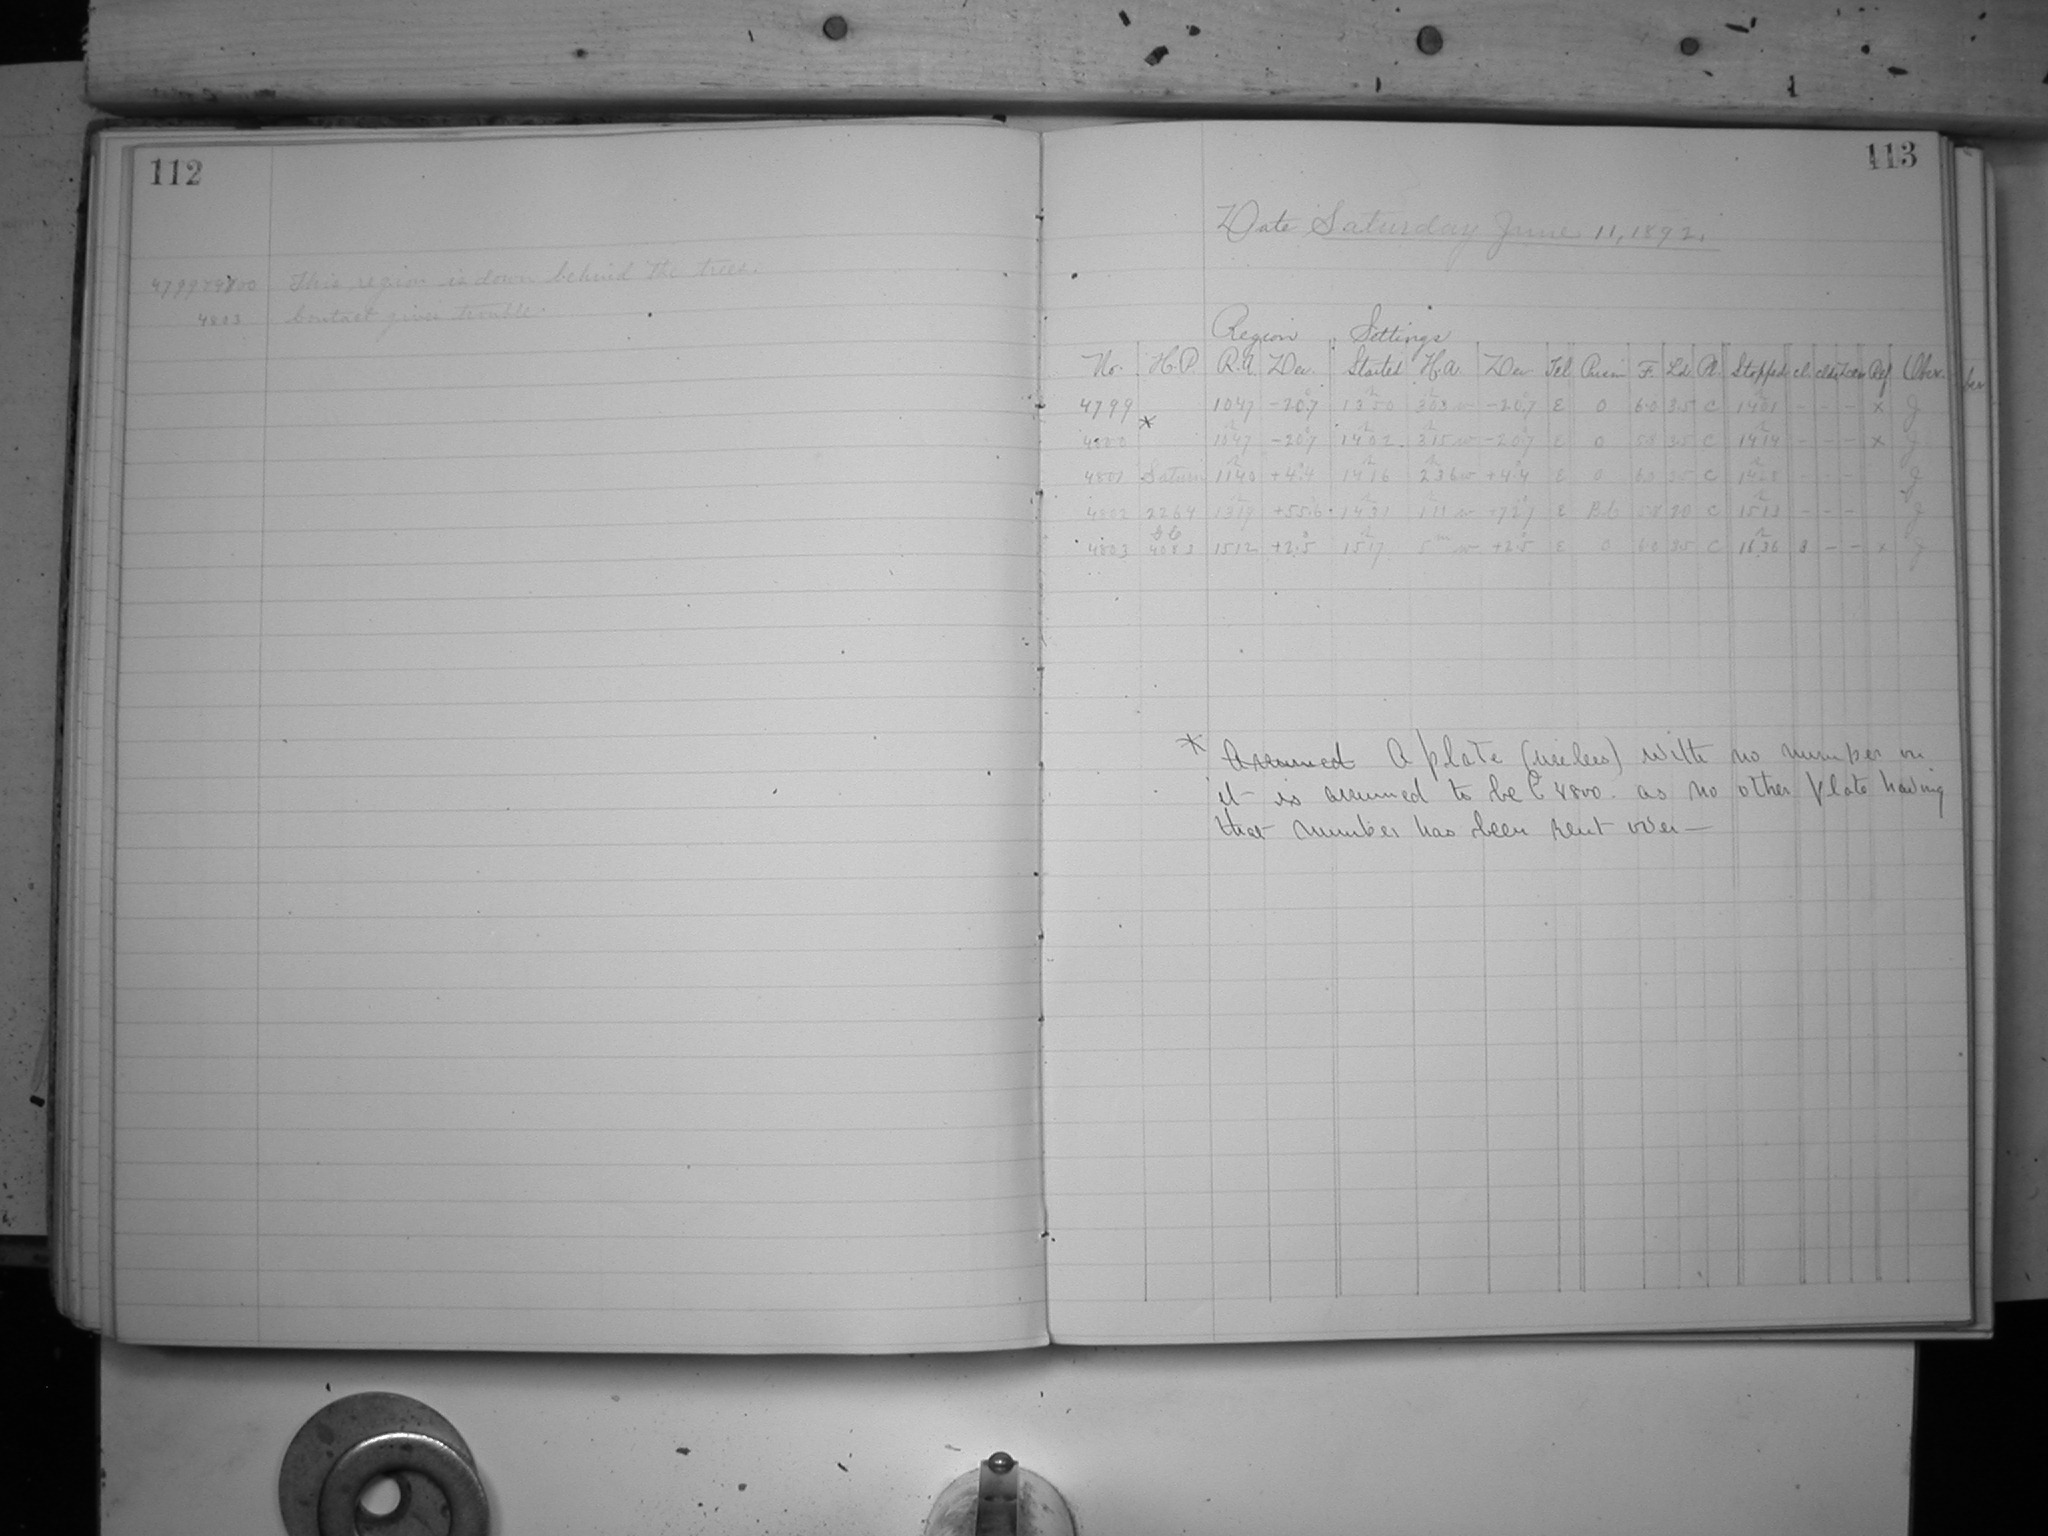 112
4799 + 4800 This region is down behind the trees.
4803 Contact gives trouble.
113
Date Saturday June 11, 1892.
Region Settings
No. H.P. R.A. Dec. Started H.A. Dec. Tel Prism F. Ld Pl. Stopped cl. Ref Obser.
4799 1047 -20.7 1350 303 w -20.7 E 0 6.0 35 C 1401 - - - x J
4800 * 1047 -20.7 1402 315 w -20.7 E 0 35 C 1414 - - - x J
4801 Saturn 1140 +4.4 1416 236 w +4.4 E 0 6.0 35 C 1428 - - - J
4802 2264 1319 +55.6 1431 111 w E 20 C 1513 - - - J
4803 G.C. 4083 1512 +2.5 1517 5m w +2.5 E 0 6.0 35 C 1636 - - x J
* Assumed A plate (useless) with no number on
it is assumed to be E 4800. as no other plate having
that number has been sent over—